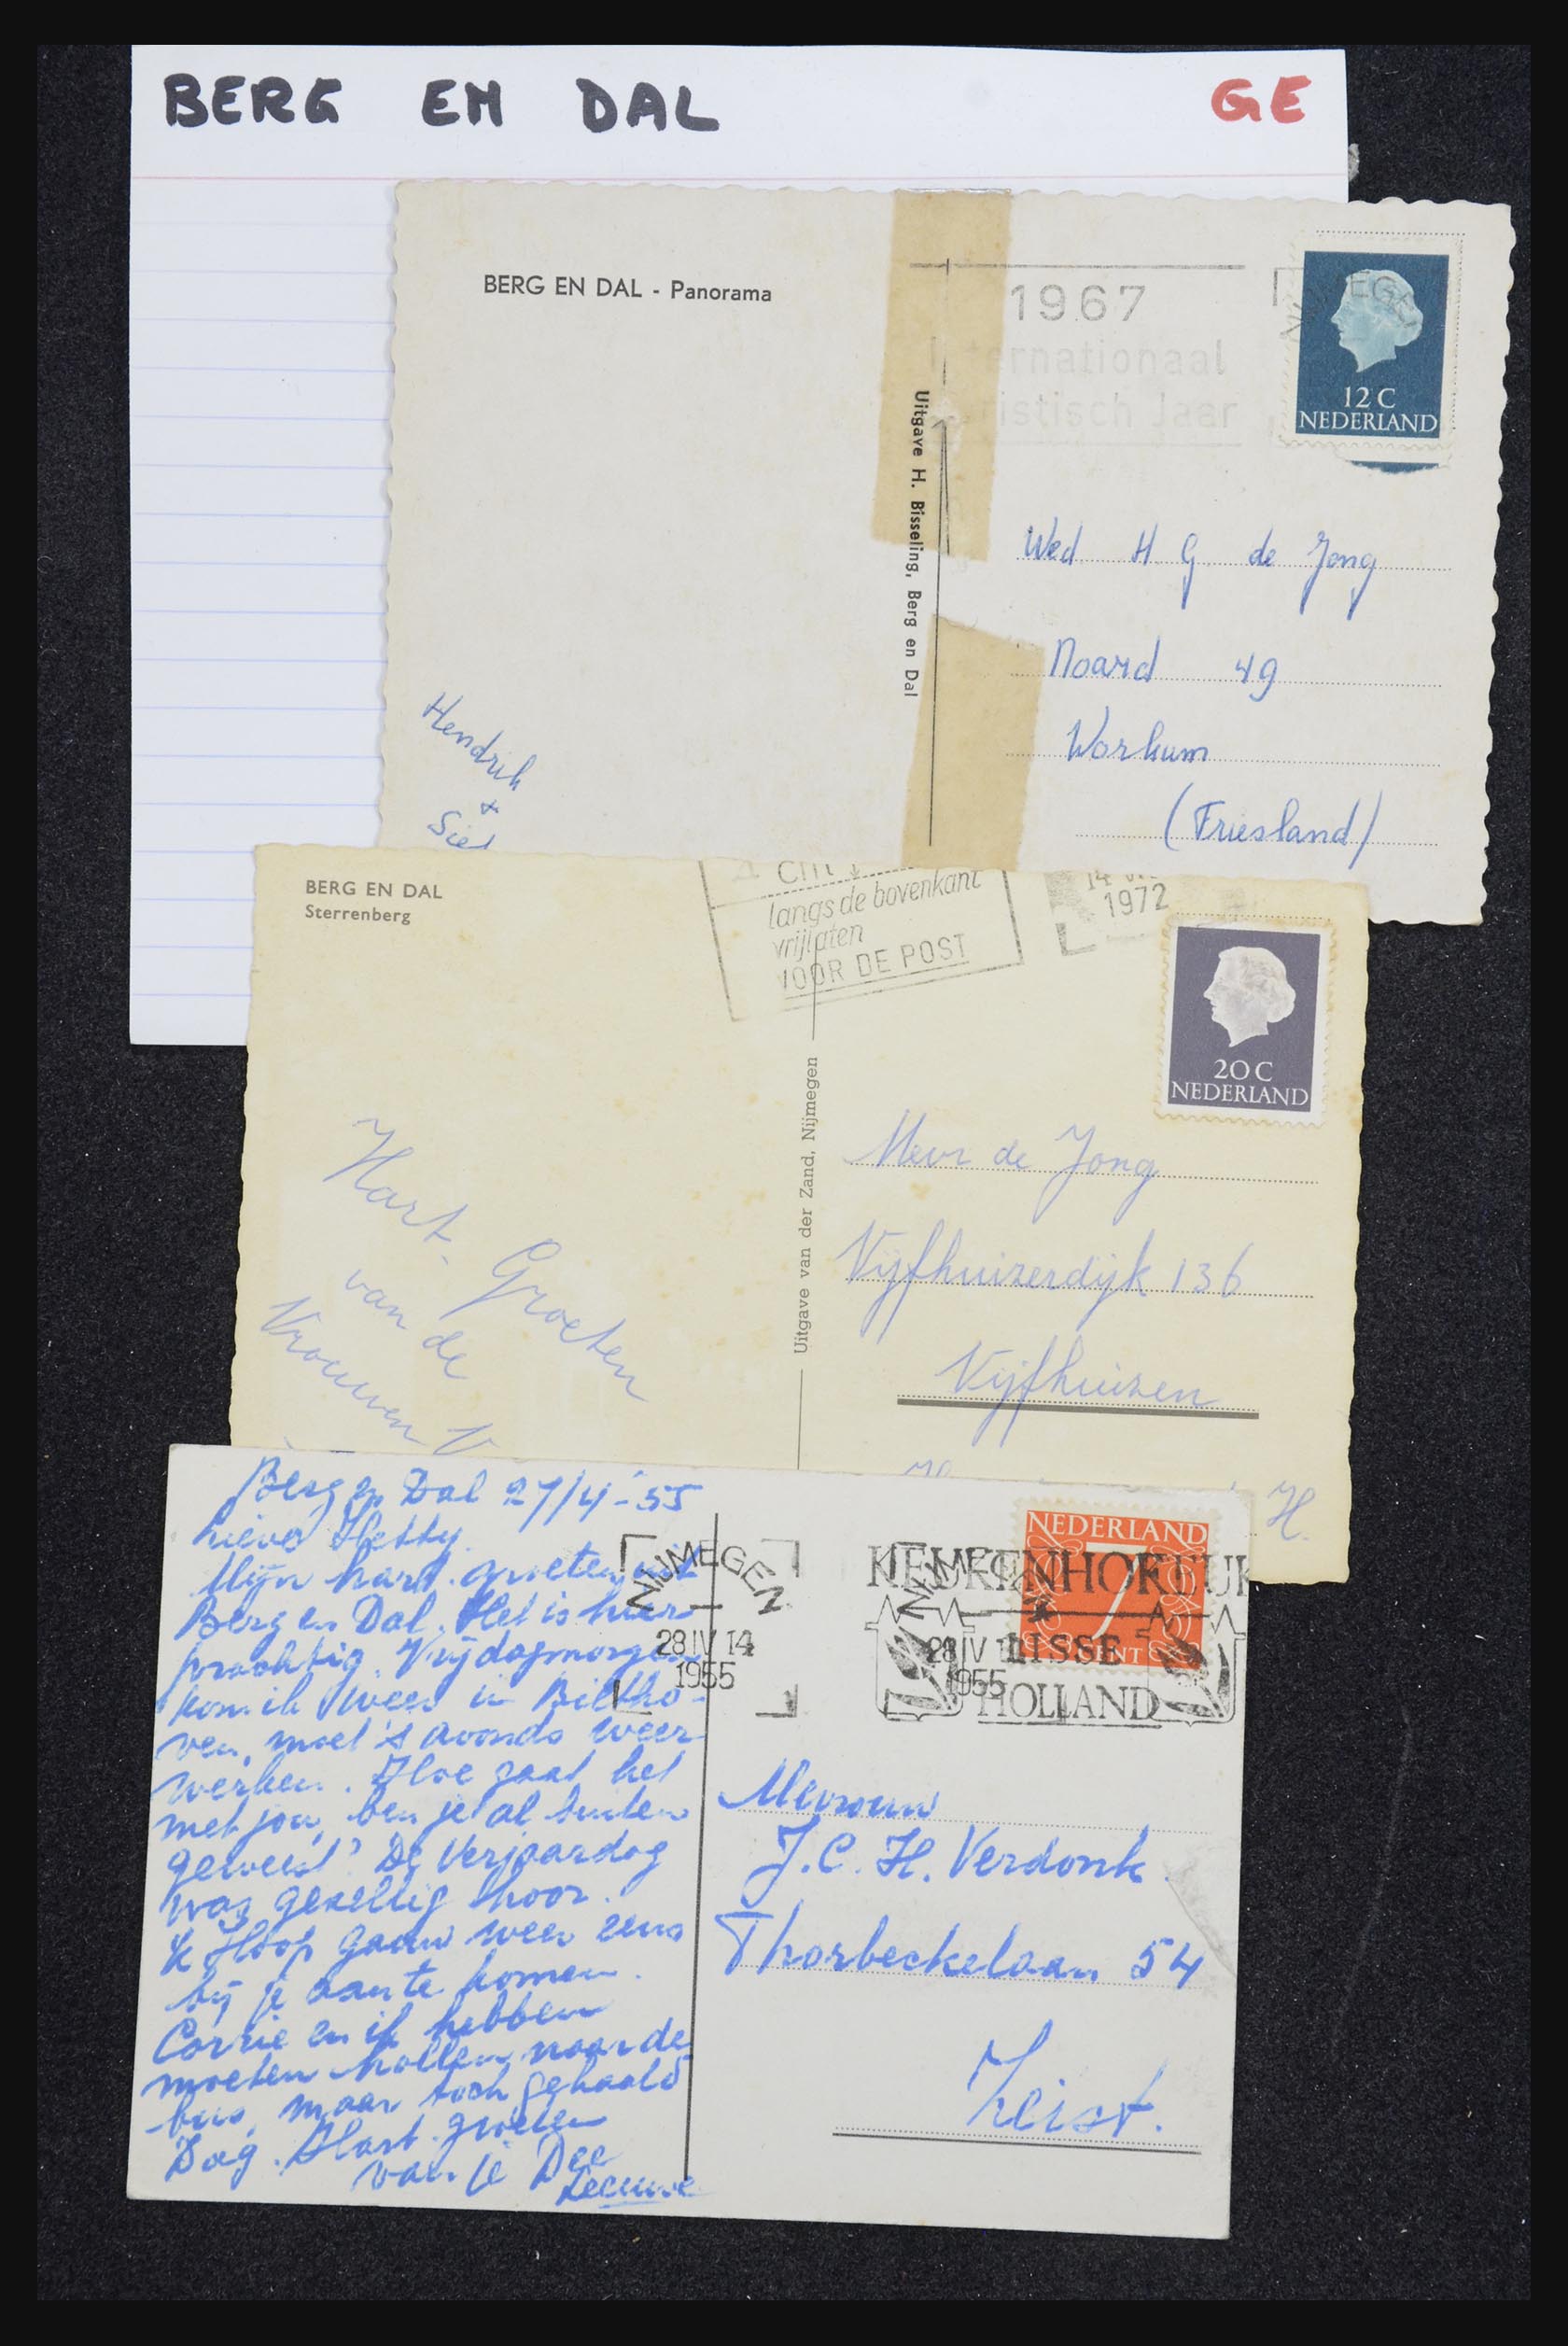 BERG EN DAL GE
BERG EN DAL - Panorama
1967
Internationaal
ristisch Jaar
12 C
NEDERLAND
Uitgave H. Bisseling, Berg en Dal
Wed H G de Jong
Noard 49
Workum
(Friesland)
Hendrik
+
BERG EN DAL
Sterrenberg
1 cm
langs de bovenkant
vrijlaten
VOOR DE POST
1972
20 C
NEDERLAND
Uitgave van der Zand, Nijmegen
Hart. Groeten
van de
Vrouwen V
Mevr de Jong
Vijfhuizerdijk 136
Vijfhuizen
H.
Berg en Dal 27/4-'55
Lieve Hetty.
Mijn hart. groeten uit
Berg en Dal. Het is hier
prachtig. Vrijdagmorgen
kom ik weer in Biltho-
ven, moet 's avonds weer
werken. Hoe gaat het
met jou, ben je al buiten
geweest? De Verjaardag
was gezellig hoor.
Ik Hoop gauw weer eens
bij je aan te komen.
Corrie en ik hebben
moeten hollen naar de
bus, maar toch gehaald
Dag. Hart. groeten
van je Dee
Leeuwe
NIJMEGEN
28 IV 14
1955
NEDERLAND
7
CENT
KEUKENHOF
NIJMEGEN
28 IV
1955
LISSE
HOLLAND
Mevrouw
J.C.H. Verdonk
Thorbeckelaan 54
Zeist.